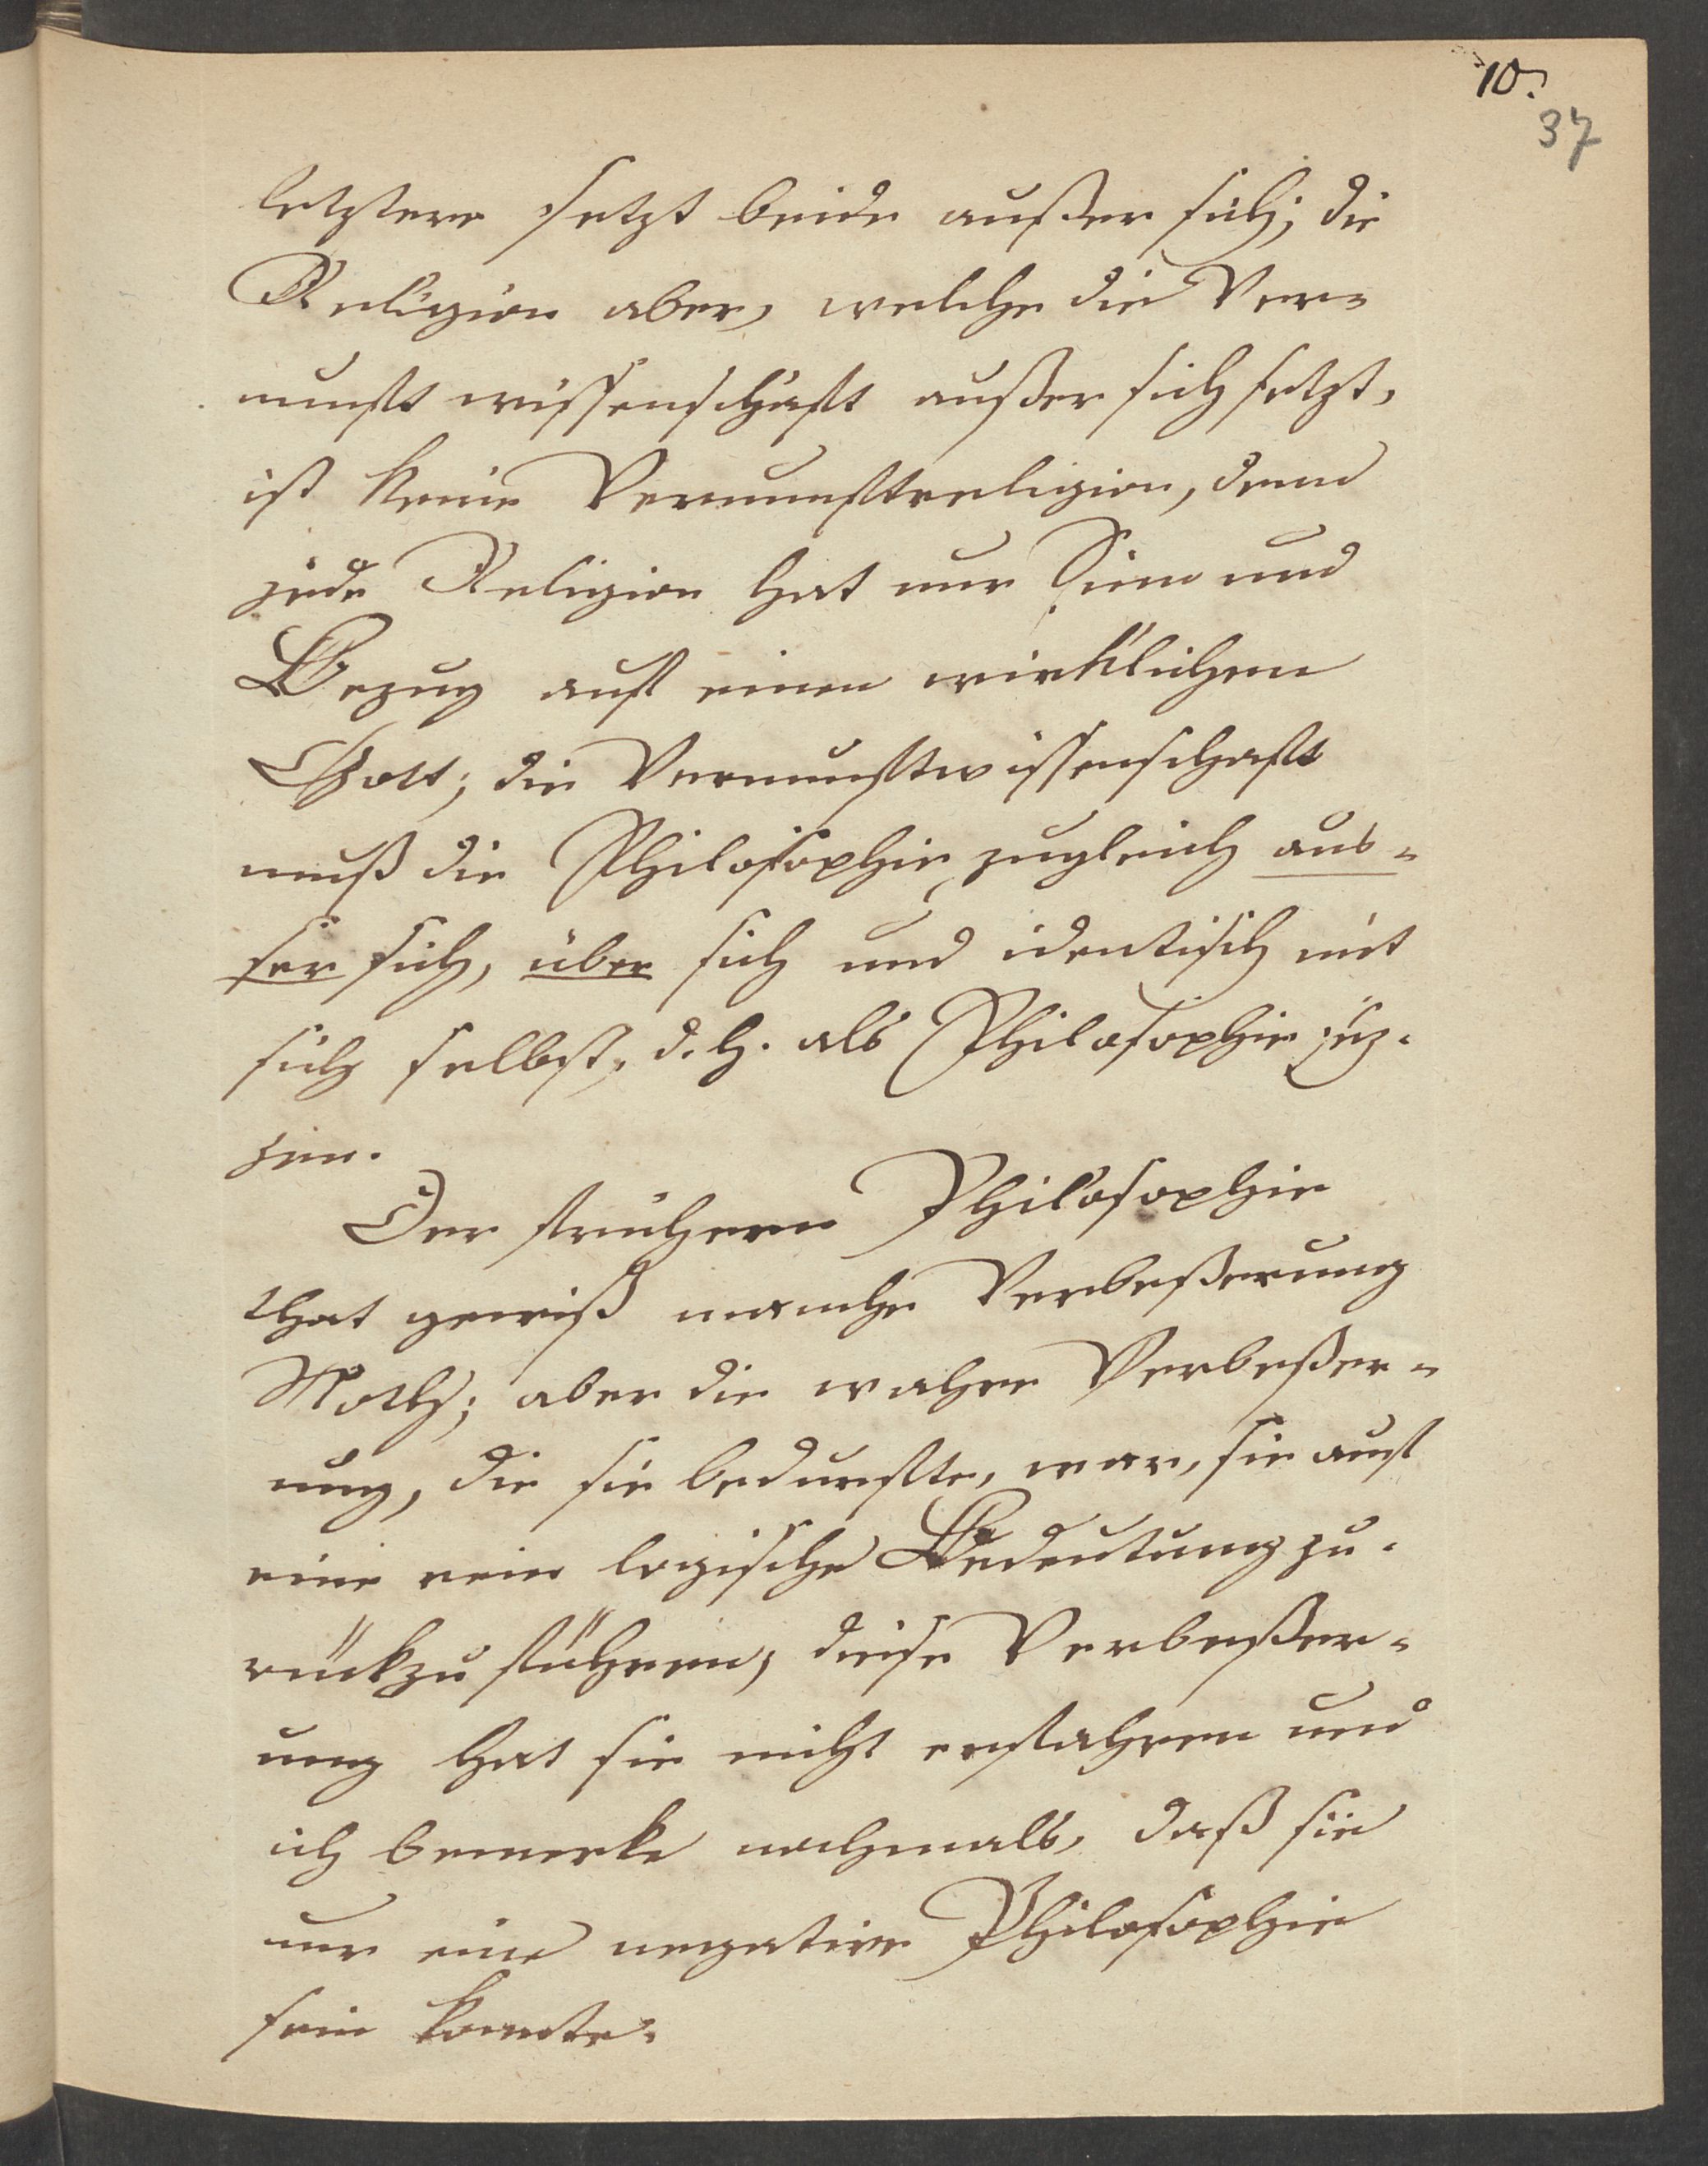 10.
37
letztere setzt beide außer sich; die
Religion aber, welche die Ver-
nunft wissenschaft außer sich setzt,
ist keine Vernunftreligion, denn
jede Religion hat nur Sinn und
Bezug auf einen wirklichen
Gott; die Vernunftwissenschaft
muß die Philosophie zugleich aus-
ser sich, über sich und identisch mit
sich selbst, d. h. als Philosophie
Der frühern Philosophie
that gewiß manche Verbeßerung
Noth; aber die wahre Verbeßer-
ung, die sie bedurfte, war, sie auf
eine rein logische Bedeutung zu-
rückzuführen; diese Verbeßer-
ung hat sie nicht erfahren und
ich bemerke nochmals, daß sie
nur eine negative Philosophie
sein konnte.